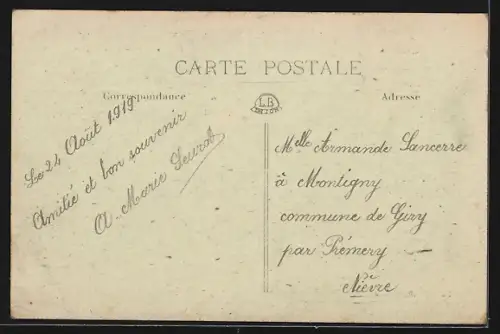 CARTE POSTALE
Correspondance
L.B
DIJON
Adresse
Le 24 Août 1919
Amitié et bon souvenir
A. Marie Seurat
Melle Armande Sancerre
à Montigny
commune de Giry
par Prémery
Nièvre